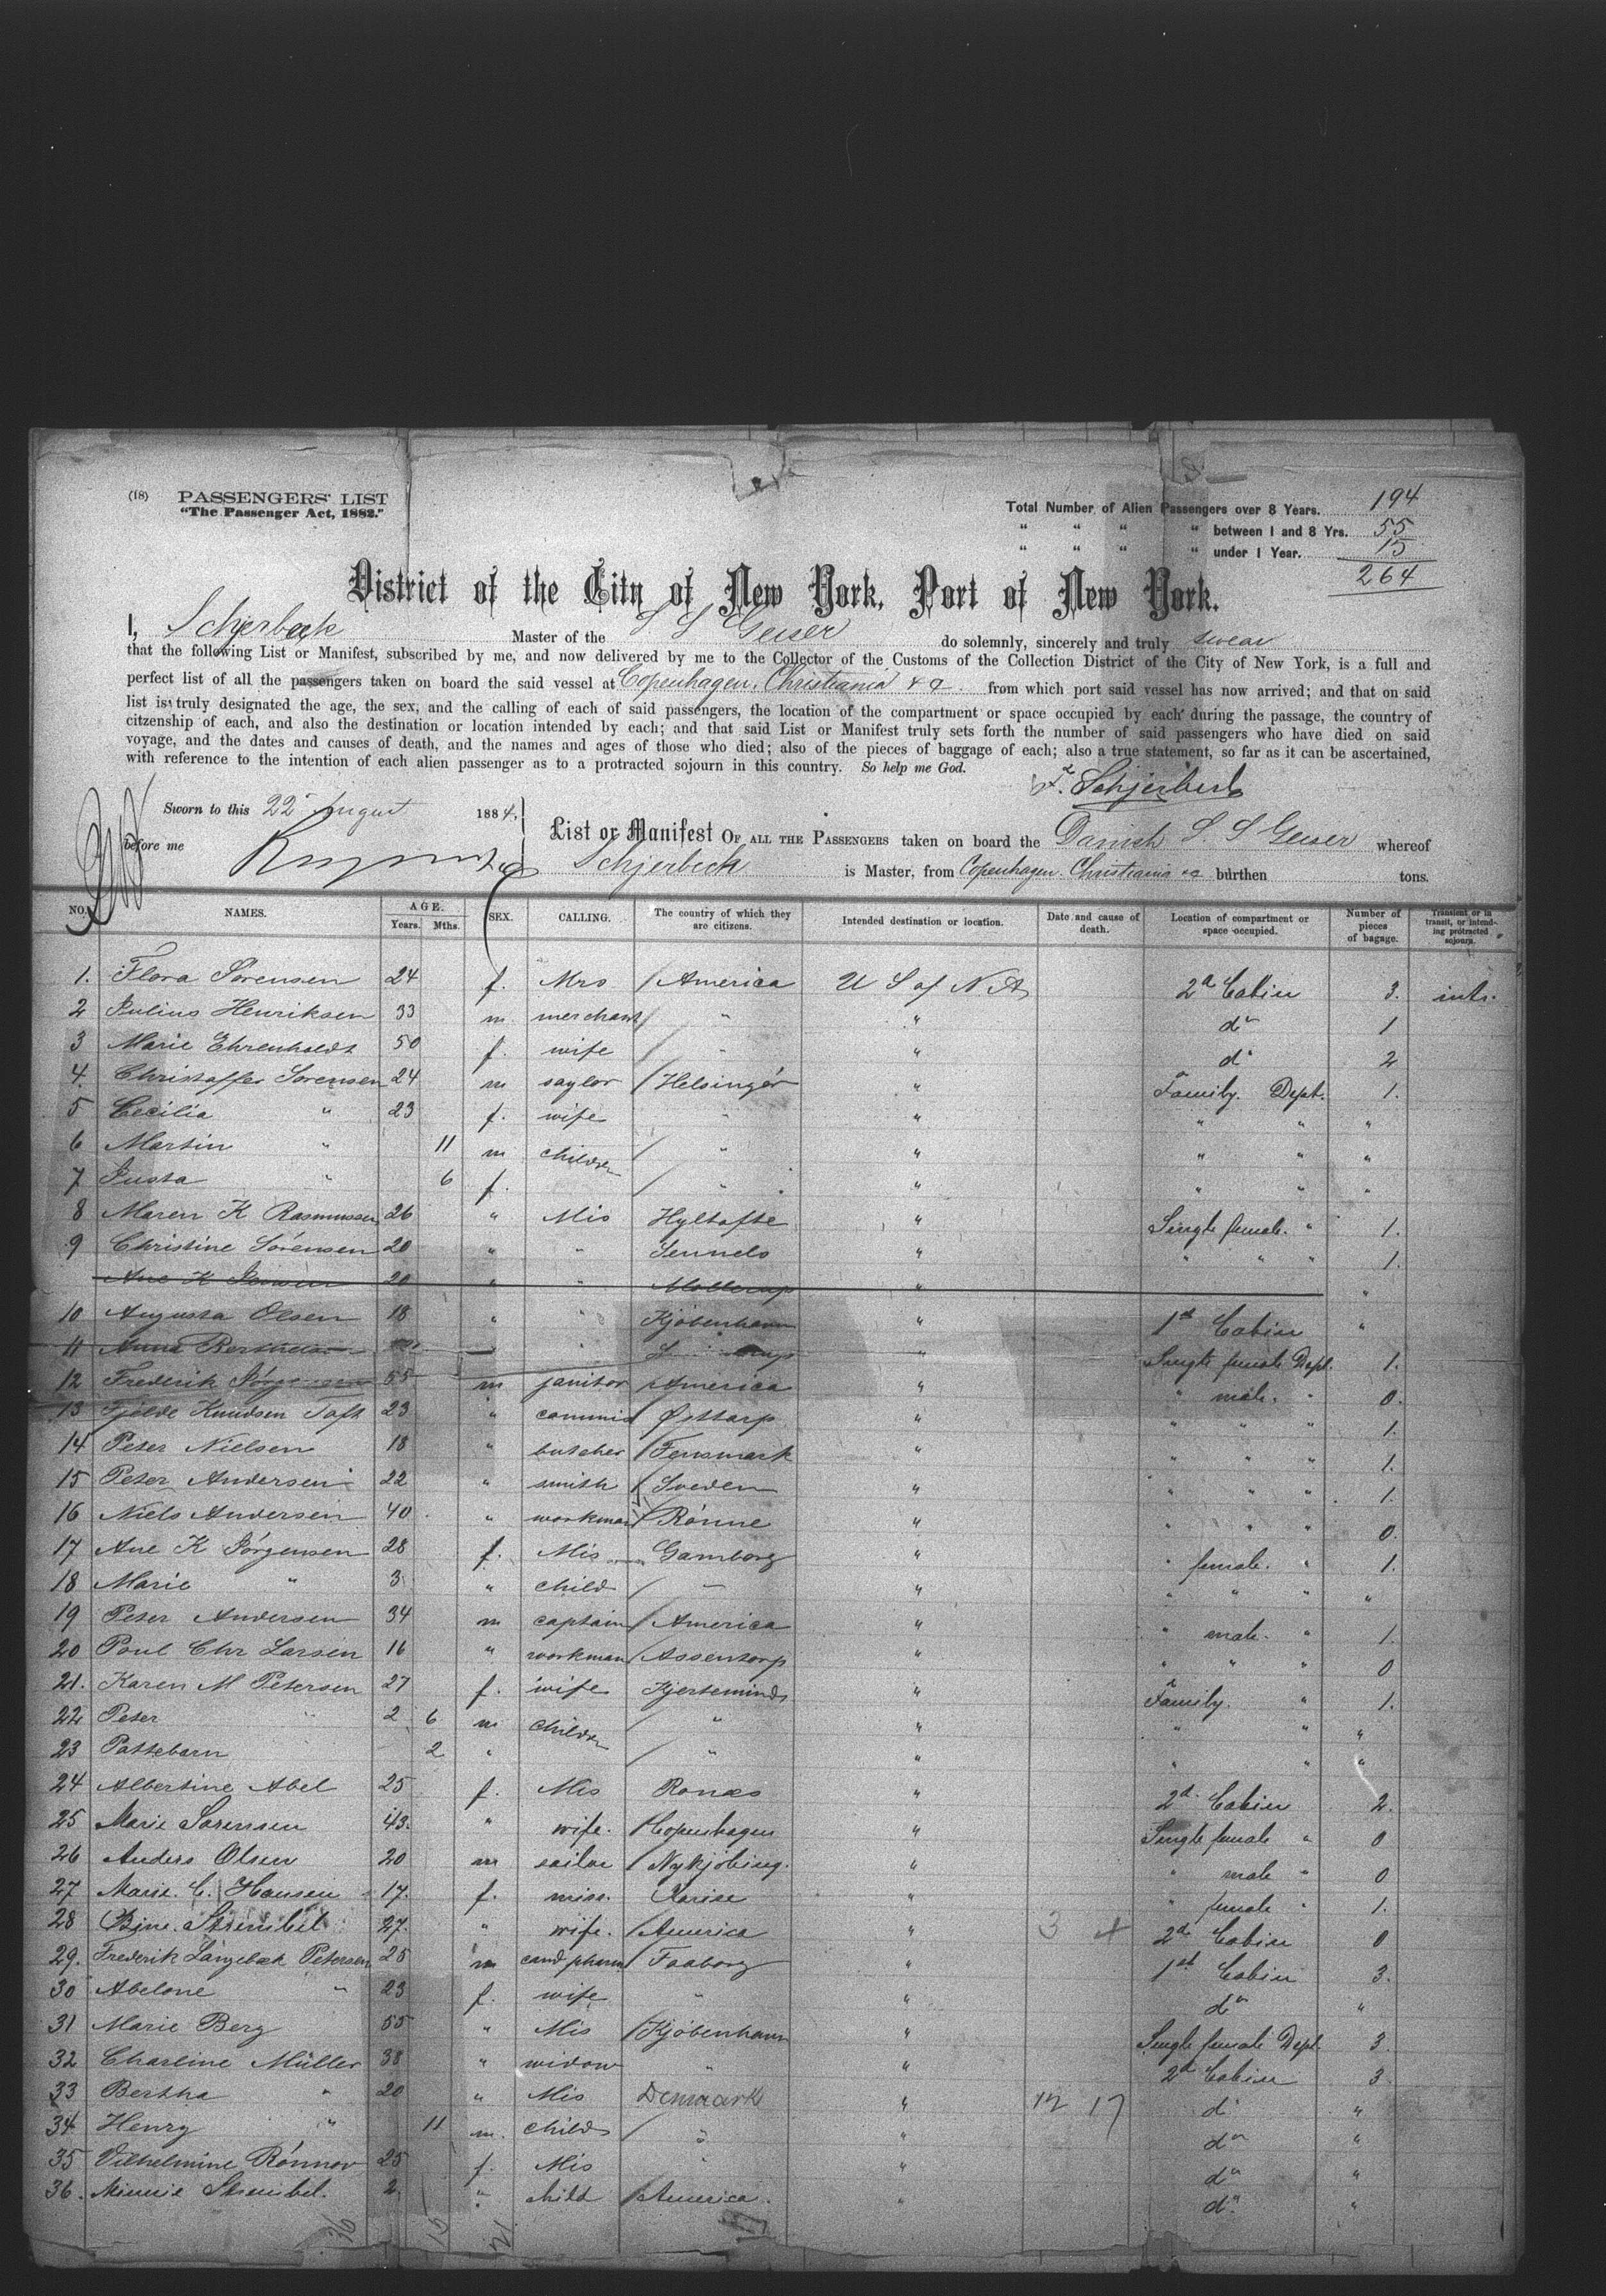 (18) PASSENGERS' LIST
"The Passenger Act, 1882."
Total Number of Alien Passengers over 8 Years. 194
" " " " between 1 and 8 Yrs. 55
" " " " under 1 Year. 15
264
District of the City of New York, Port of New York.
I, Schjerbeck Master of the S S Geiser do solemnly, sincerely and truly swear
that the following List or Manifest, subscribed by me, and now delivered by me to the Collector of the Customs of the Collection District of the City of New York, is a full and
perfect list of all the passengers taken on board the said vessel at Copenhagen, Christiania & a from which port said vessel has now arrived; and that on said
list is truly designated the age, the sex, and the calling of each of said passengers, the location of the compartment or space occupied by each during the passage, the country of
citzenship of each, and also the destination or location intended by each; and that said List or Manifest truly sets forth the number of said passengers who have died on said
voyage, and the dates and causes of death, and the names and ages of those who died; also of the pieces of baggage of each; also a true statement, so far as it can be ascertained,
with reference to the intention of each alien passenger as to a protracted sojourn in this country. So help me God.
Schjerbeck
Sworn to this 22 August 1884,
before me
List or Manifest OF ALL THE PASSENGERS taken on board the Danish S. S Geiser whereof
Schjerbeck is Master, from Copenhagen. Christiania &a burthen tons.
NO. NAMES. AGE. Years. Mths. SEX. CALLING. The country of which they are citizens. Intended destination or location. Date and cause of death. Location of compartment or space occupied. Number of pieces of bagage. Transient or in transit, or intending protracted sojourn.
1. Flora Sørensen 24 f. Mrs America U S of N A 2d Cabin 3. ints.
2 Julius Henriksen 33 m. merchant " " do 1
3 Marie Ehrenholdt 50 f. wife " " do 2
4. Christoffer Sørensen 24 m saylor Helsingør " Family. Dept. 1.
5 Cecilia " 23 f. wife " " " " "
6 Martin " 11 m children " " " " "
7 Justa " 6 f. " " " " "
8 Maren K Rasmussen 26 " Mis Hyltofte " Single female. " 1.
9 Christine Sørensen 20 " " Sennels " " " " 1.
Ane K 20 " " Mollerup " "
10 Augusta Olsen 18 " " Kjøbenhavn " 1st Cabin "
11 Anna " Single female Dept. 1.
12 Frederik Jørgensen 55 m janitor America " " male. " 0.
13 Fjelde Knudsen Toft 23 " commis Østtarp " " " " 1.
14 Peter Nielsen 18 " butcher Fensmark " " " " 1.
15 Peter Andersen 22 " smith Sveden " " " " 1.
16 Niels Andersen 40 " workman Rønne " " " " 0.
17 Ane K Jørgensen 28 f. Mis Gamborg " " female. " 1.
18 Marie " 3 " child " " " " " "
19 Peter Andersen 34 m captain America " " male. " 1.
20 Poul Chr Larsen 16 " workman Assentorp " " " " 0
21. Karen M Petersen 27 f. wife Kjerteminde " Family. " 1.
22 Peter " 2 6 m children " " " " "
23 Pattebarn 2 " " " " " "
24 Albertine Abel 25 f. Mis Rønæs " 2d. Cabin 2.
25 Marie Sørensen 43. " wife. Copenhagen " Single female " 0
26 Anders Olsen 20 m sailor Nykjøbing. " " male " 0
27 Marie. C. Hansen 17. f. miss. Karise " " female " 1.
28 Bine. Strembel 27. " wife. America " 3 4 2d Cabin 0
29. Frederik Langebæk Petersen 25 m cand pharm Faaborg " 1st Cabin 3.
30 Abelone " 23 f. wife " " do "
31 Marie Berg 55 " Mis Kjøbenhavn " Single female Dept. 3.
32 Charline Müller 38 " widow " " 2d Cabin 3
33 Bertha " 20 " Mis Denmark " 12 17 do "
34 Henry " 11 m. child " " do "
35 Vilhelmine Rønnov 25 f. Mis " " do "
36. Minnie Strembel. 2. " child America. " do. "
36 15 21